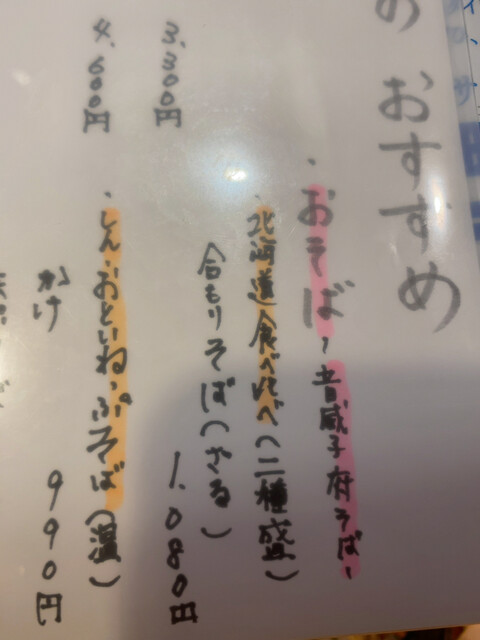 の おすすめ
・おそば〜音威子府そば〜
・北海道食べ比べ(二種盛)
合もりそば(ざる)
1,080円
・しん・おといねっぷそば(温)
かけ 990円
3,300円
4,600円